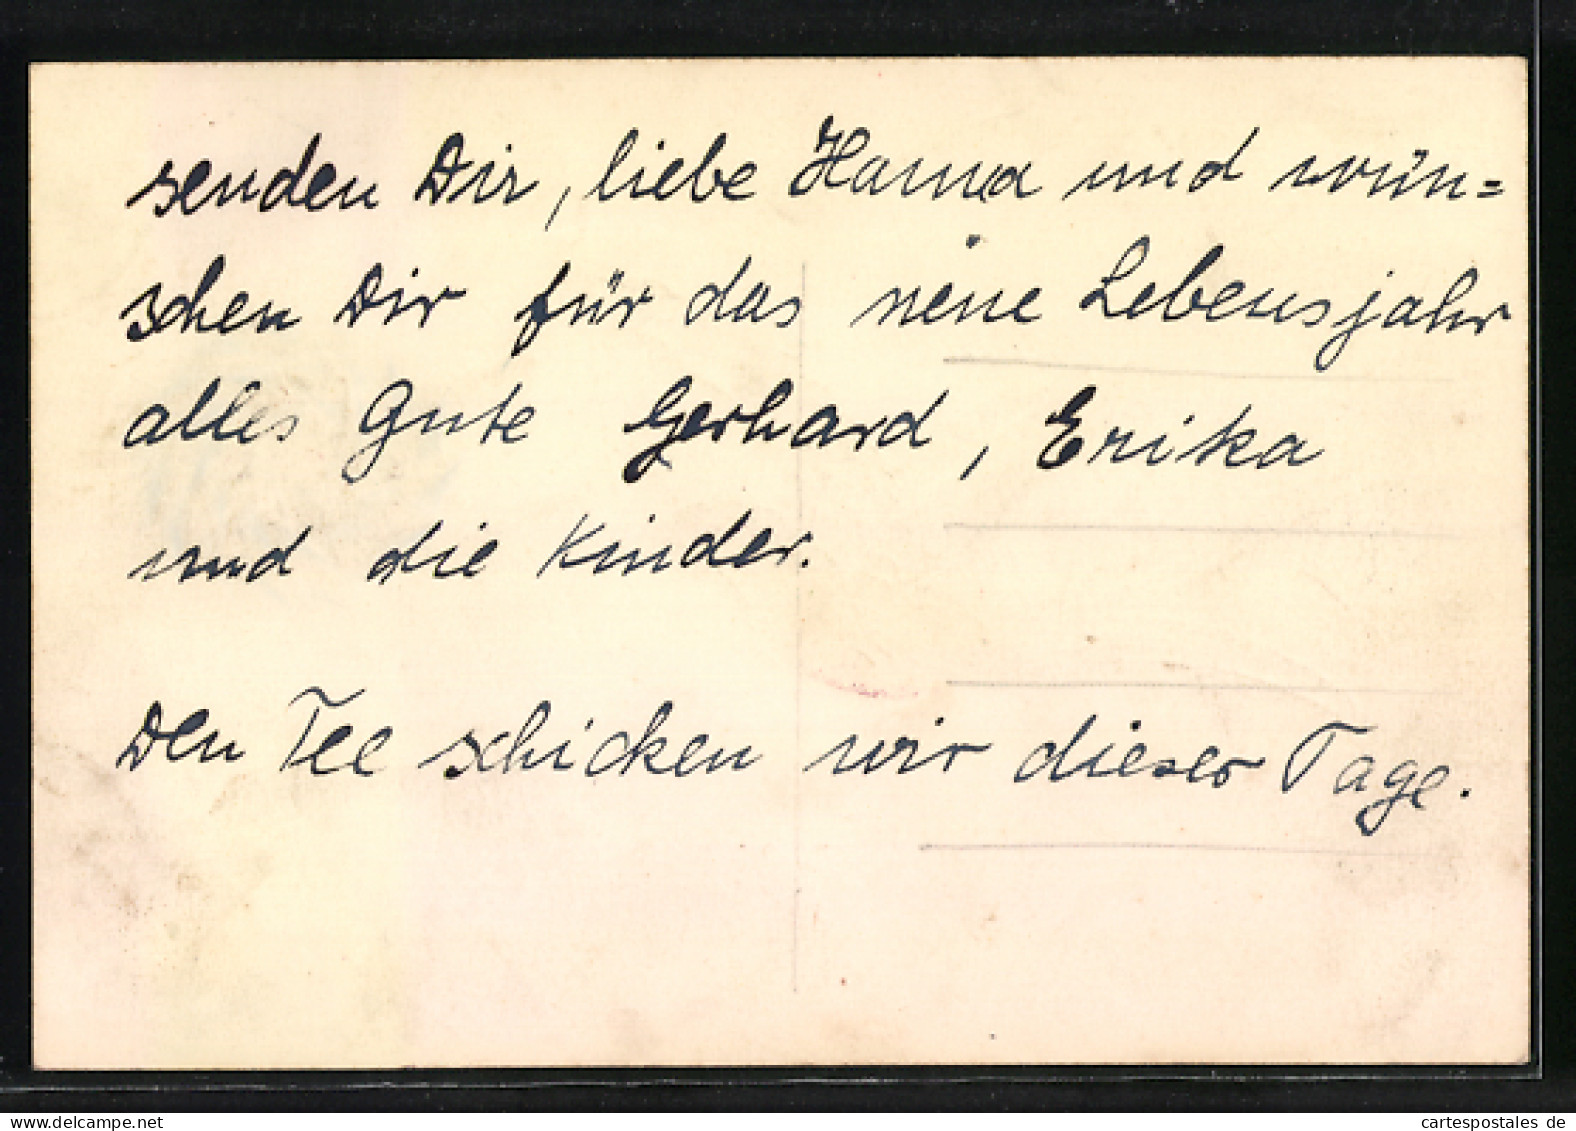 senden Dir, liebe Hanna und wün=
schen Dir für das neue Lebensjahr
alles Gute Gerhard, Erika
und die Kinder.
Den Tee schicken wir dieser Tage.
cartespostales de